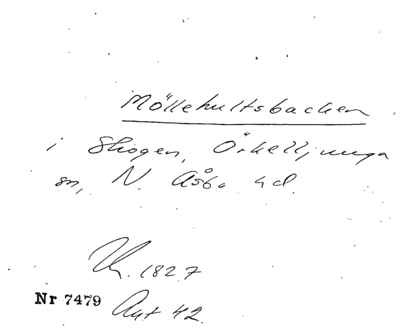 Möllehultsbacken
i Skogen, Örkelljunga
sn, N. Åsbo hd.
Uk. 1827
Nr 7479 Aut 42.